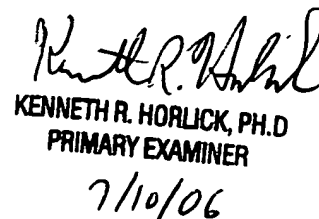 Kenneth R. Horlick
KENNETH R. HORLICK, PH.D
PRIMARY EXAMINER
7/10/06